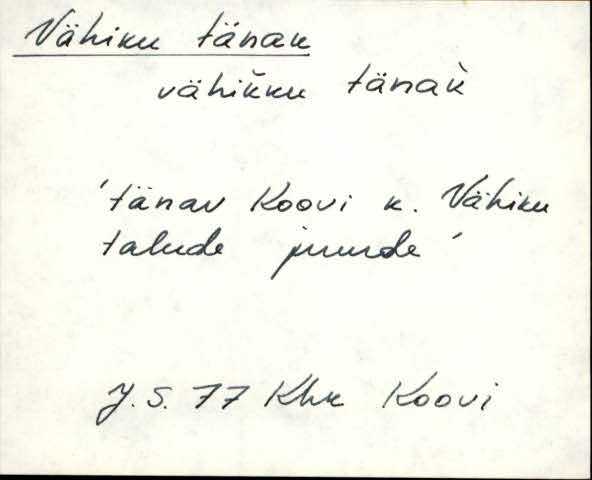 Vähiku tänak
vähik̆ku tänak̆
'tänav Koovi k. Vähiku
talude juurde'
J. S. 77 Khk Koovi